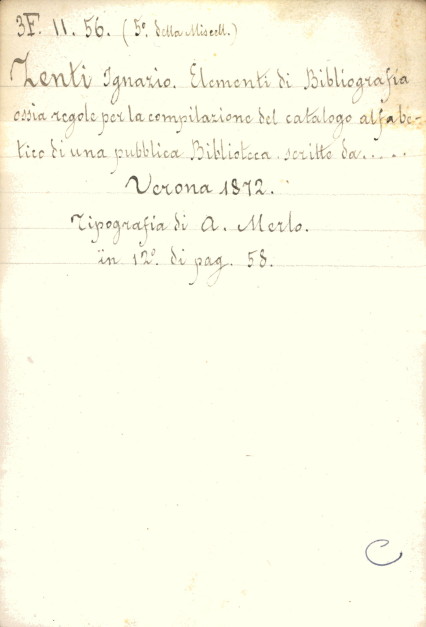 3F. II. 56. (5º. della Miscell.)
Zenti Ignazio. Elementi di Bibliografia
ossia regole per la compilazione del catalogo alfabe-
tico di una pubblica Biblioteca scritte da.....
Verona 1872.
Tipografia di A. Merlo.
in 12º. di pag. 58.
C